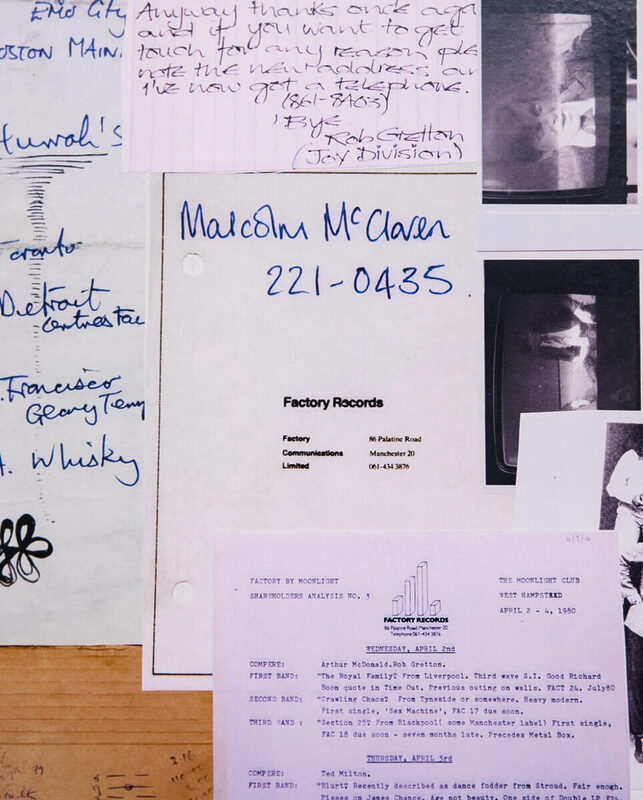 EMO City
BOSTON MAIN.
Hurrah's
Toronto
Detroit
. Francisco
Geary Temp
A. Whisky
Anyway thanks once aga
and if you want to get
touch for any reason ple
note the new address an
I've now got a telephone.
(861-8403)
'Bye
Rob Gretton
(Joy Division)
Malcolm McClaren
221-0435.
Factory Records
Factory
Communications
Limited
86 Palatine Road
Manchester 20
061-434 3876
FACTORY BY MOONLIGHT
SHAREHOLDERS ANALYSIS NO. 3
FACTORY RECORDS
86 Palatine Road, Manchester 20
Telephone 061-434 3876
THE MOONLIGHT CLUB
WEST HAMPSTEAD
APRIL 2 - 4, 1980
WEDNESDAY, APRIL 2nd
COMPERE: Arthur McDonald.Rob Gretton.
FIRST BAND: "The Royal Family? From Liverpool. Third wave S.I. Good Richard
Boon quote in Time Out. Previous outing on walls. FACT 24. July80
SECOND BAND: "Crawling Chaos? From Tyneside or somewhere. Heavy modern.
First single, 'Sex Machine', FAC 17 due soon.
THIRD BAND : "Section 25? From Blackpool( some Manchester label) First single,
FAC 18 due soon - seven months late. Precedes Metal Box.
THURSDAY, APRIL 3rd
COMPERE: Ted Milton.
FIRST BAND: "Blurt? Recently described as dance fodder from Stroud. Fair enogh.
Pisses on James Chance. Are not beauty. One side of Double LP